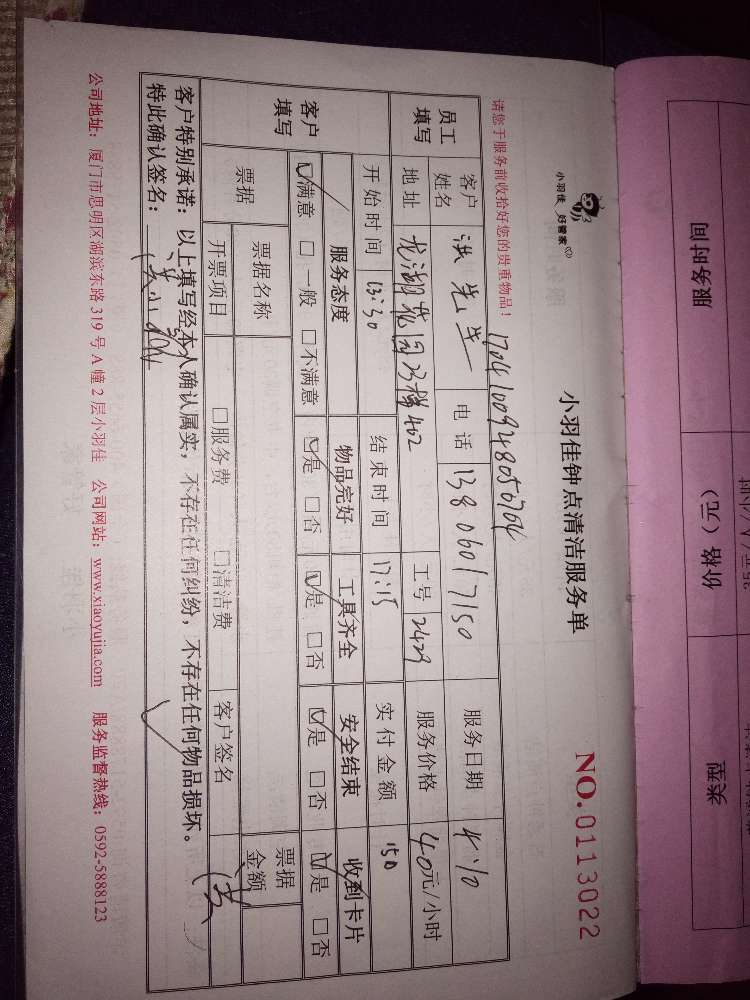 小羽佳 好管家
小羽佳钟点清洁服务单
NO.0113022
请您于服务前收拾好您的贵重物品！
员工填写 客户姓名 洪先生 电话 13806017150 服务日期 4.10
地址 龙湖花园 402 工号 2429 服务价格 40元/小时
开始时间 13:30 结束时间 17:15 实付金额 150
客户填写 服务态度 物品完好 工具齐全 安全结束 收到卡片
☑满意 □一般 □不满意 ☑是 □否 ☑是 □否 ☑是 □否 ☑是 □否
票据 票据名称 票据金额
开票项目 □服务费 □清洁费 客户签名
客户特别承诺：以上填写经本人确认属实，不存在任何纠纷，不存在任何物品损坏。
特此确认签名：
公司地址：厦门市思明区湖滨东路319号A幢2层小羽佳 公司网站：www.xiaoyujia.com 服务监督热线：0592-5888123
服务时间
价格（元）
类型